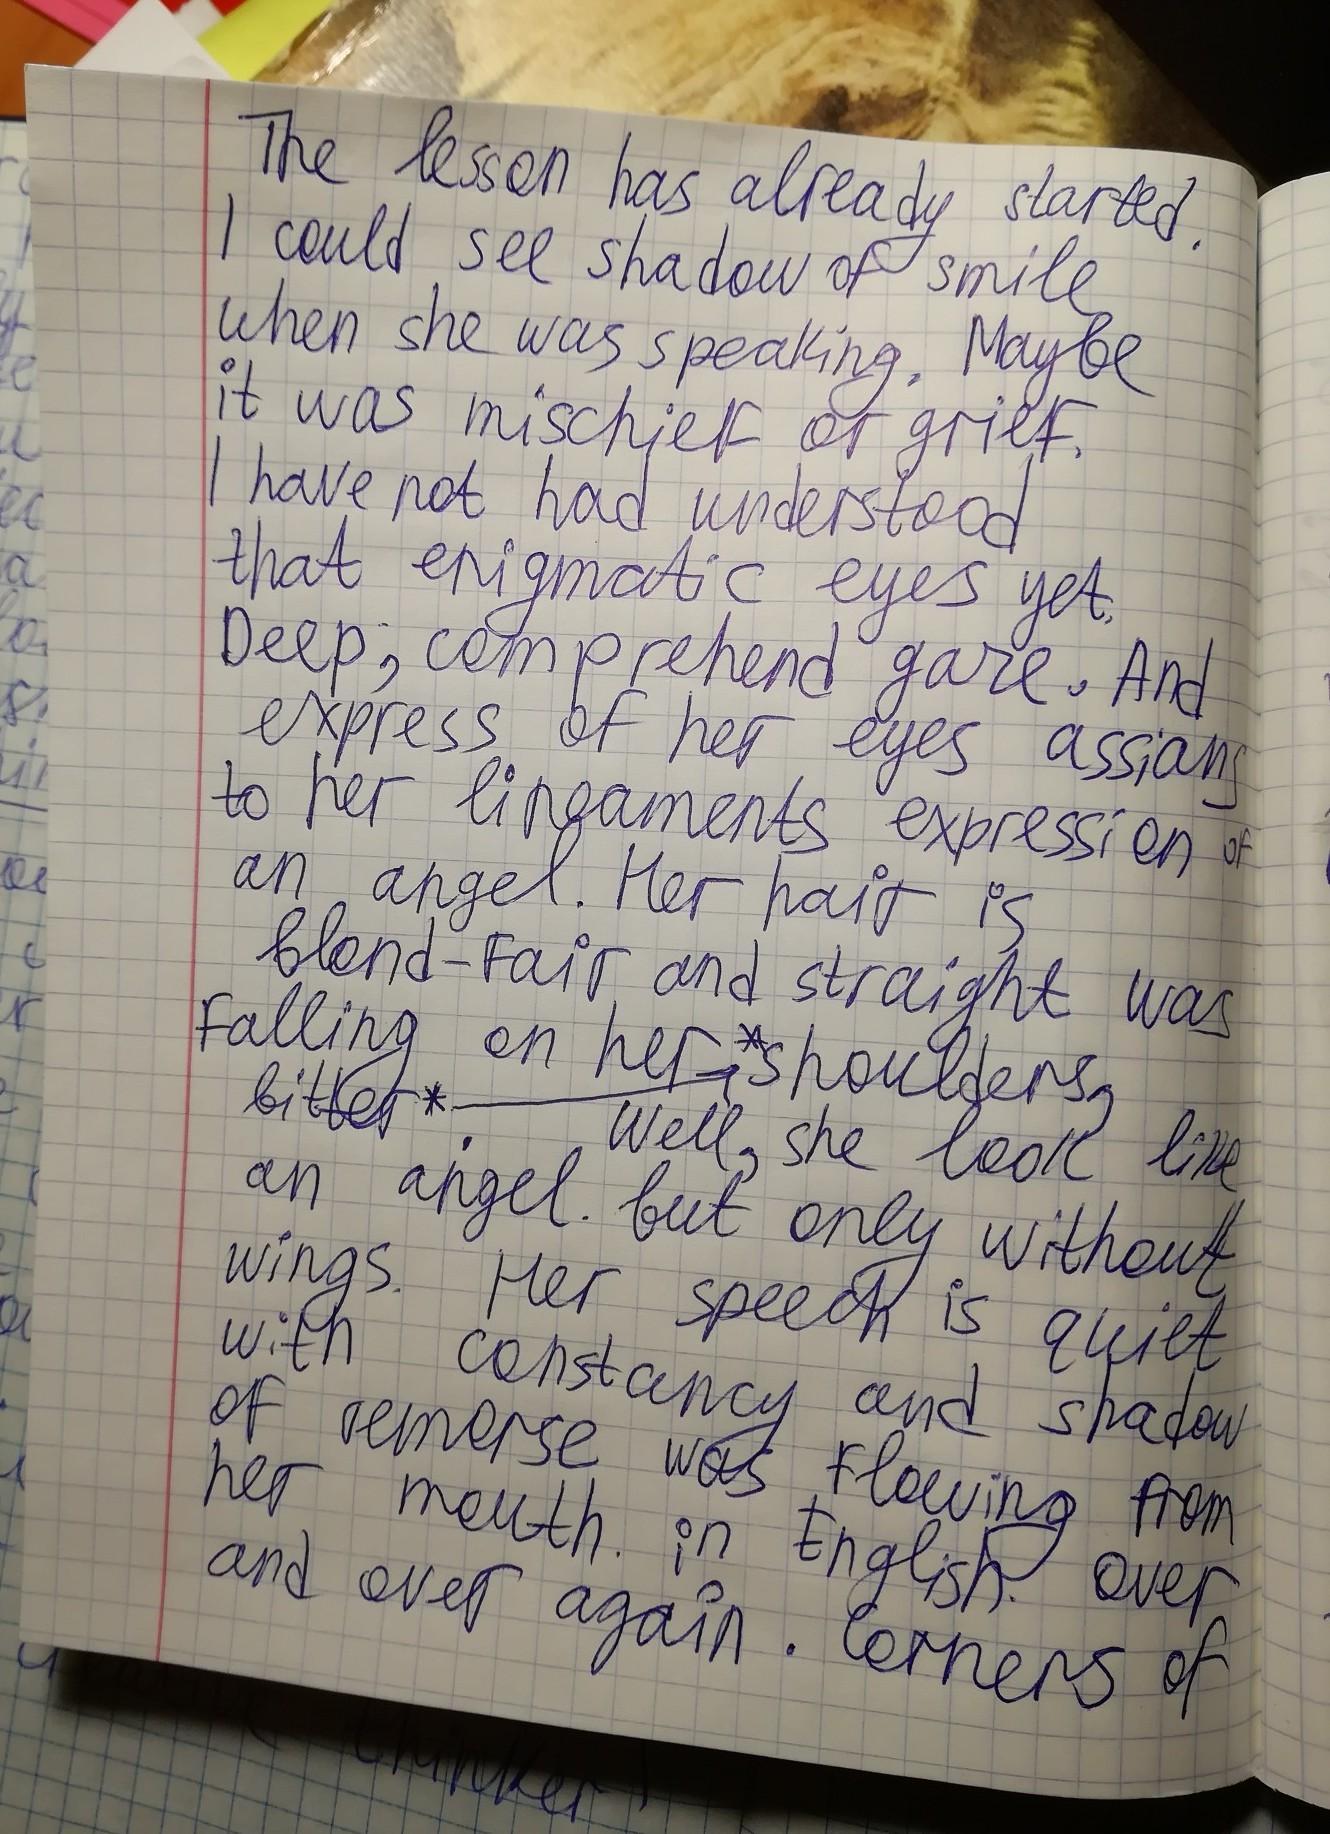 The lesson has already started.
I could see shadow of smile
when she was speaking. Maybe
it was mischief or grief.
I have not had understood
that enigmatic eyes yet.
Deep, comprehend gaze. And
express of her eyes assians
to her lineaments expression of
an angel. Her hair is
blond-fair and straight was
falling on her *shoulders,
bitter* Well, she look like
an angel. but only without
wings. Her speech is quiet
with constancy and shadow
of remorse was flowing from
her mouth. in English. over
and over again. Corners of
thinker!